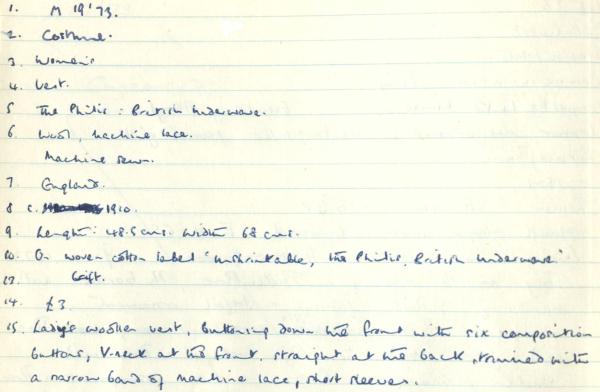 1. M 19'73.
2. Costume.
3. Women's
4. Vest.
5 The Philis : British Underwear.
6. Wool, machine lace.
Machine sewn.
7. England.
8 c. 1910.
9. Length: 48.5 cms. width 68 cms.
10. On woven cotton label 'Unshrinkable, The Philis, British Underwear'
13. Gift.
14. £3
15. Lady's woollen vest, buttoning down the front with six composition
buttons, V-neck at the front, straight at the back, trimmed with
a narrow band of machine lace, short sleeves.